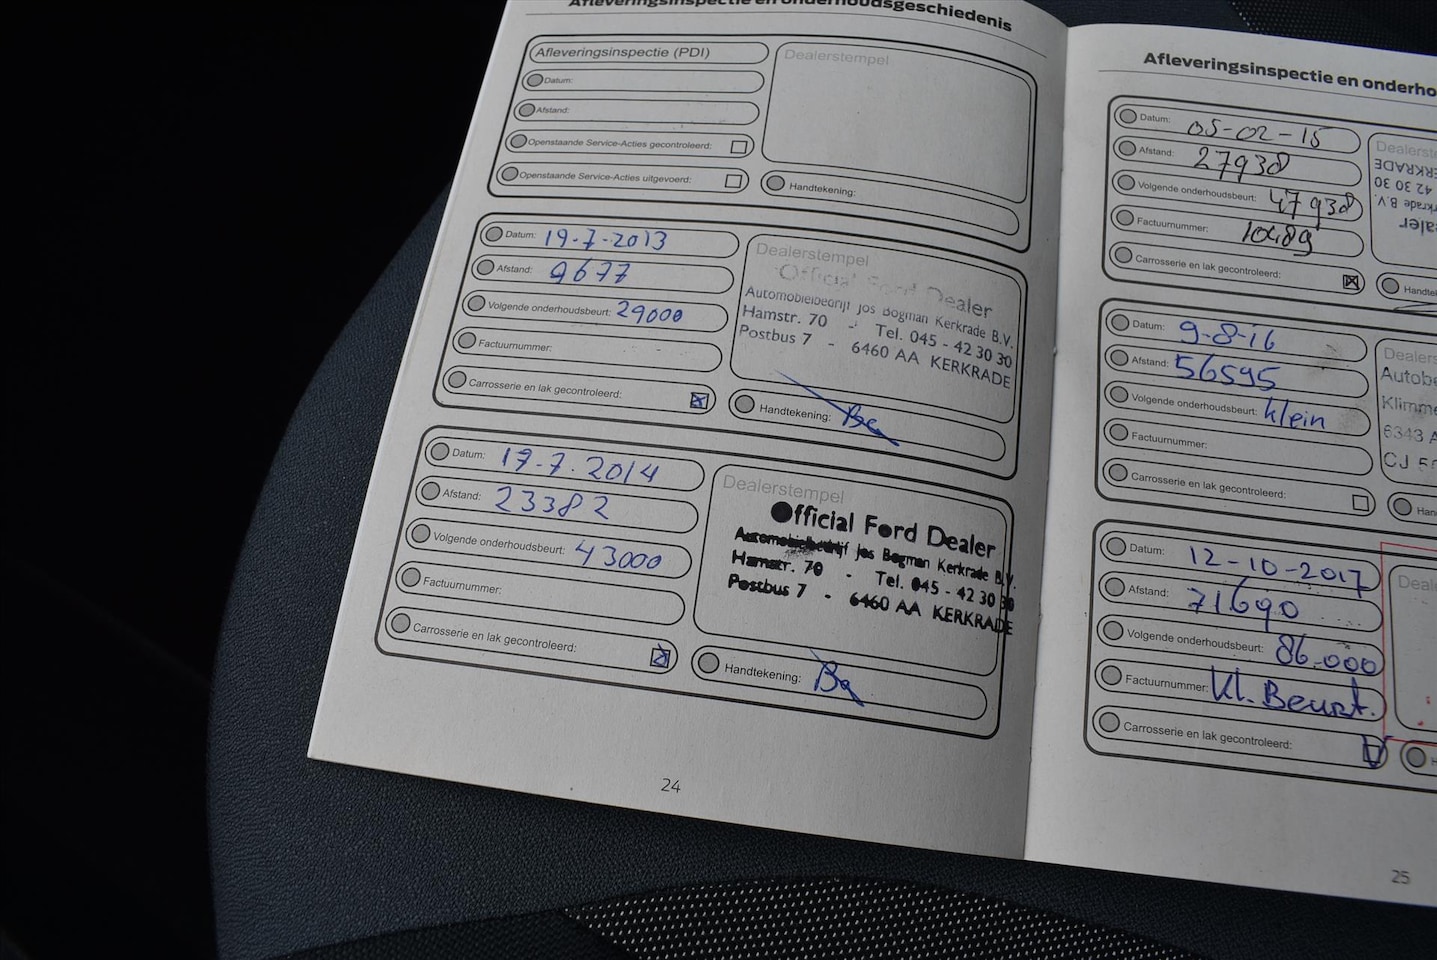 Afleveringsinspectie en onderhoudsgeschiedenis
Afleveringsinspectie (PDI)
Datum:
Afstand:
Openstaande Service-Acties gecontroleerd:
Openstaande Service-Acties uitgevoerd:
Dealerstempel
Handtekening:
Datum: 19-7-2013
Afstand: 9677
Volgende onderhoudsbeurt: 29000
Factuurnummer:
Carrosserie en lak gecontroleerd:
Dealerstempel
Official Ford Dealer
Automobielbedrijf Jos Bogman Kerkrade B.V.
Hamstr. 70 - Tel. 045 - 42 30 30
Postbus 7 - 6460 AA KERKRADE
Handtekening:
Datum: 17-7-2014
Afstand: 23382
Volgende onderhoudsbeurt: 43000
Factuurnummer:
Carrosserie en lak gecontroleerd:
Dealerstempel
Official Ford Dealer
Automobielbedrijf Jos Bogman Kerkrade B.V.
Hamstr. 70 - Tel. 045 - 42 30 30
Postbus 7 - 6460 AA KERKRADE
Handtekening:
24
Afleveringsinspectie en onderho
Datum: 05-02-15
Afstand: 27938
Volgende onderhoudsbeurt: 47938
Factuurnummer:
Carrosserie en lak gecontroleerd:
Dealerste
ERKRADE
42 30 30
krade B.V.
ealer
Handte
Datum: 9-8-16
Afstand: 56595
Volgende onderhoudsbeurt: klein
Factuurnummer:
Carrosserie en lak gecontroleerd:
Dealers
Autobe
Klimme
6343 A
Han
Datum: 12-10-2017
Afstand: 71690
Volgende onderhoudsbeurt: 86.000
Factuurnummer: Kl. Beurt.
Carrosserie en lak gecontroleerd:
Deal
H
25